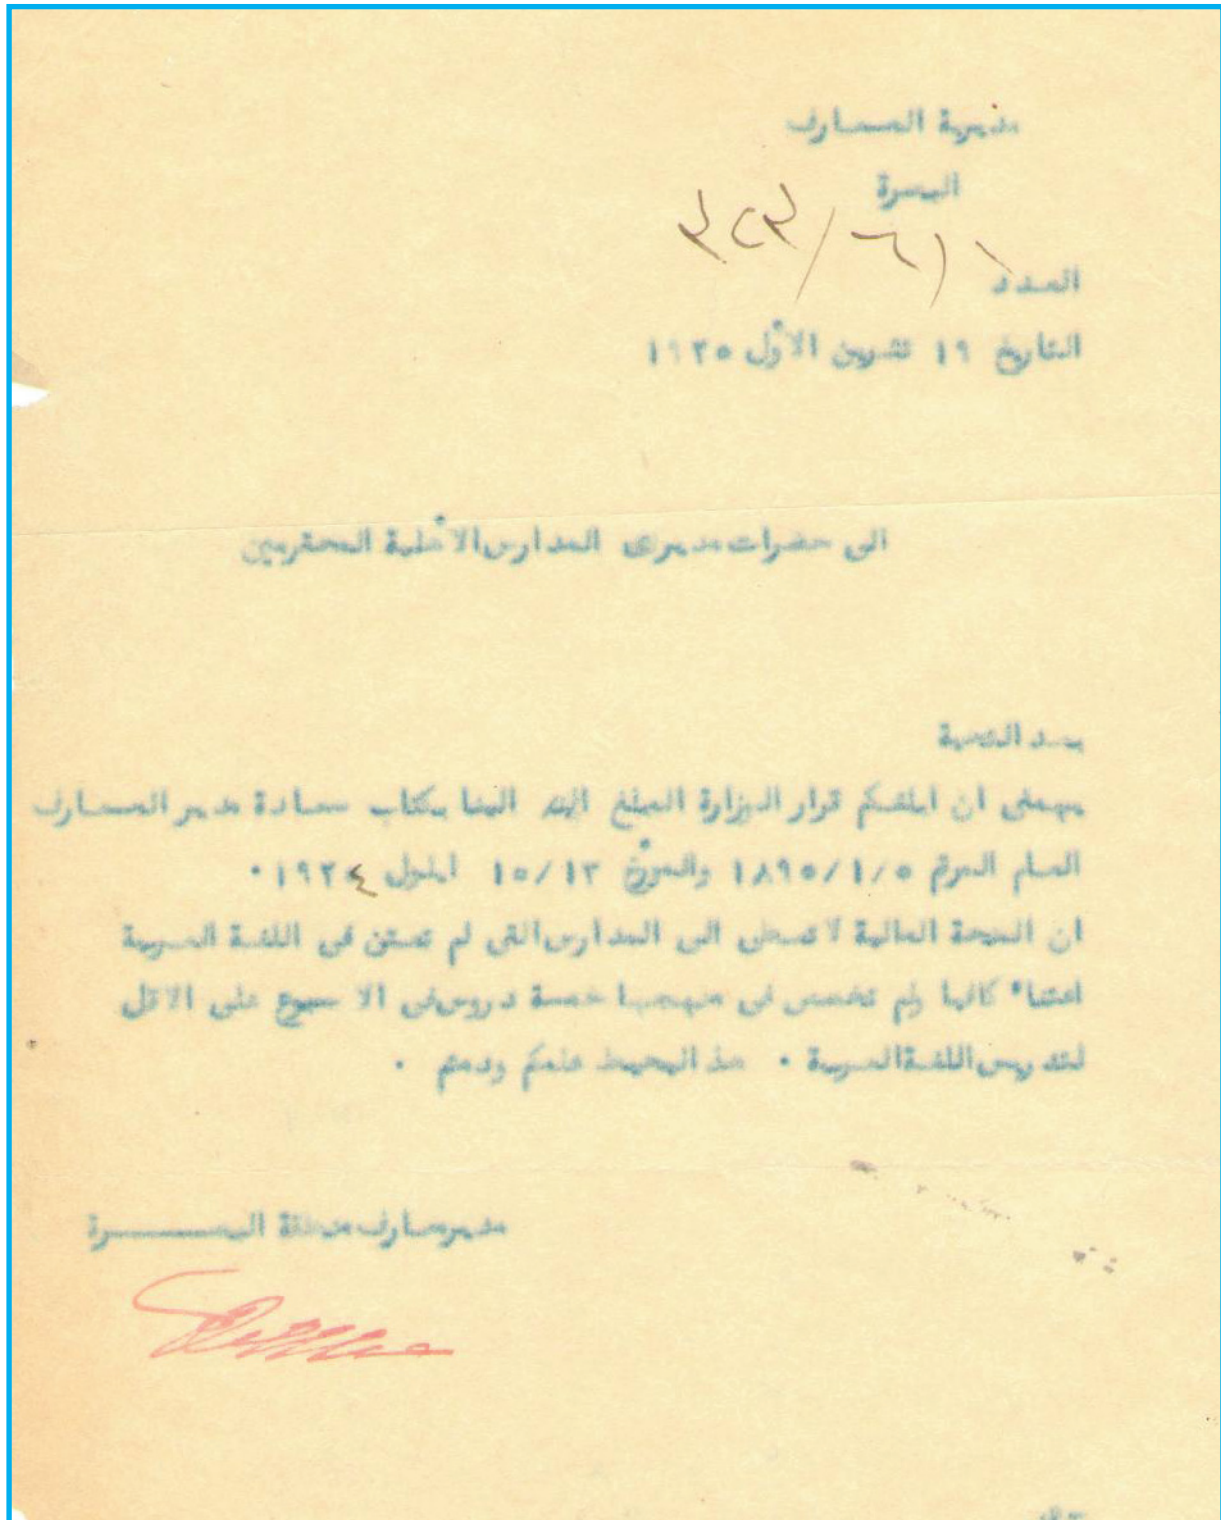 مديرية المعارف
البصرة
العدد ١١٦/٣٢٣
التاريخ ١٩ تشرين الاول ١٩٢٥
الى حضرات مديرى المدارس الأهلية المحترمين
بعد التحية
يهمنى ان ابلغكم قرار الوزارة المبلغ الينا بكتاب سعادة مدير المعارف
العام المرقم ١٨٩٥/١/٥ والمؤرخ ١٥/١٣ ايلول ١٩٢٤ ٠
ان المنحة المالية لاتعطى الى المدارس التى لم تعتن فى اللغة العربية
اعتناء كافيا ولم تخصص فى منهجها خمسة دروس فى الاسبوع على الاقل
لتدريس اللغة العربية ٠ هذ اليحيط علمكم ودمتم ٠
مدير معارف منطقة البصــــــرة